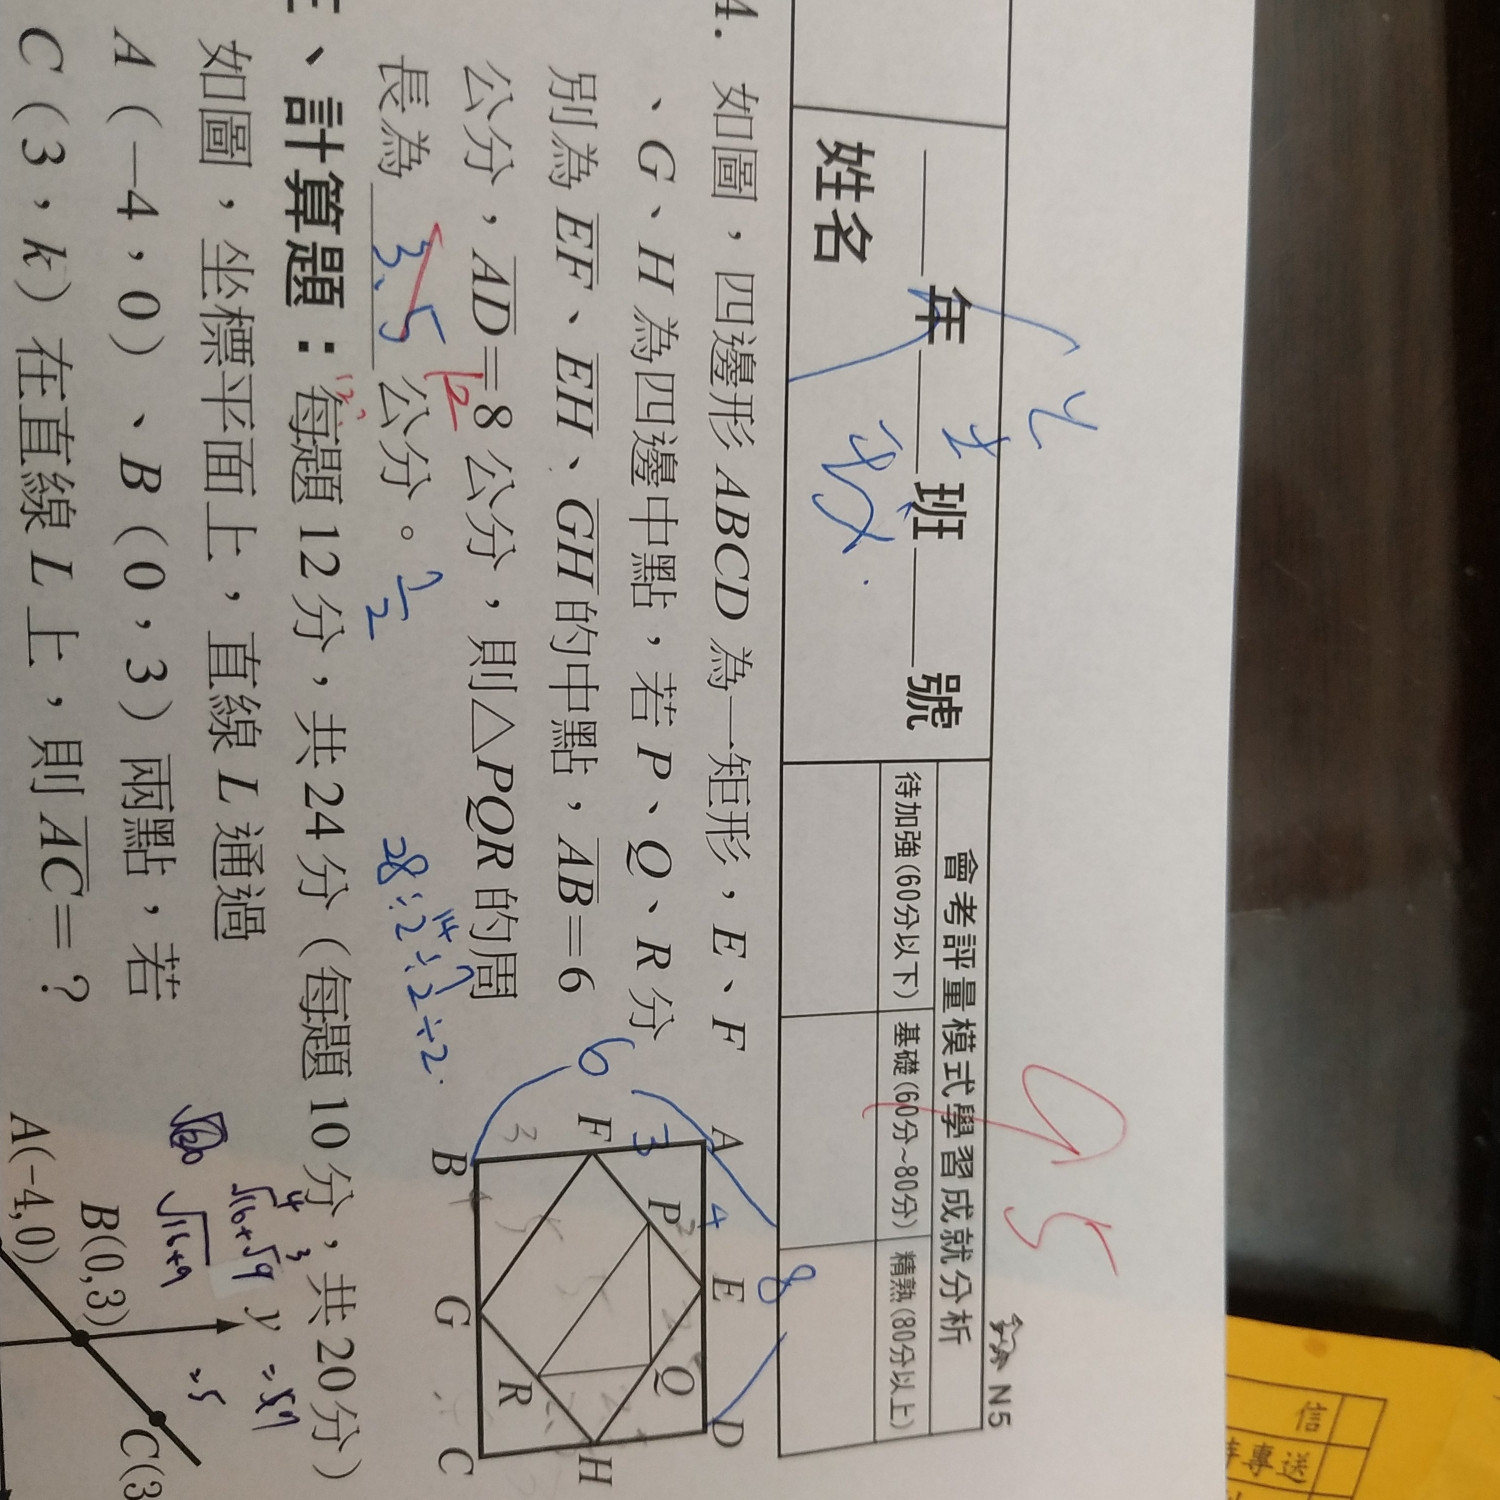 95
N5
會考評量模式學習成就分析
待加強(60分以下) 基礎(60分~80分) 精熟(80分以上)
年 班 號
姓名
4. 如圖，四邊形 ABCD 為一矩形，E、F
、G、H 為四邊中點，若 P、Q、R 分
別為 EF、EH、GH 的中點，AB＝6
公分，AD＝8 公分，則△PQR 的周
長為 3.5 公分。
12
7/2
28÷2÷2÷2
14 7
6
8
3
4
A E D
P Q
F H
R
B G C
3
5
三、計算題：每題 12 分，共 24 分（每題 10 分，共 20 分）
如圖，坐標平面上，直線 L 通過
A（−4，0）、B（0，3）兩點，若
C（3，k）在直線 L 上，則 AC＝？
4 3
√16+√9
√16+9
=5
y
B(0,3)
C(3
A(-4,0)
信
專送